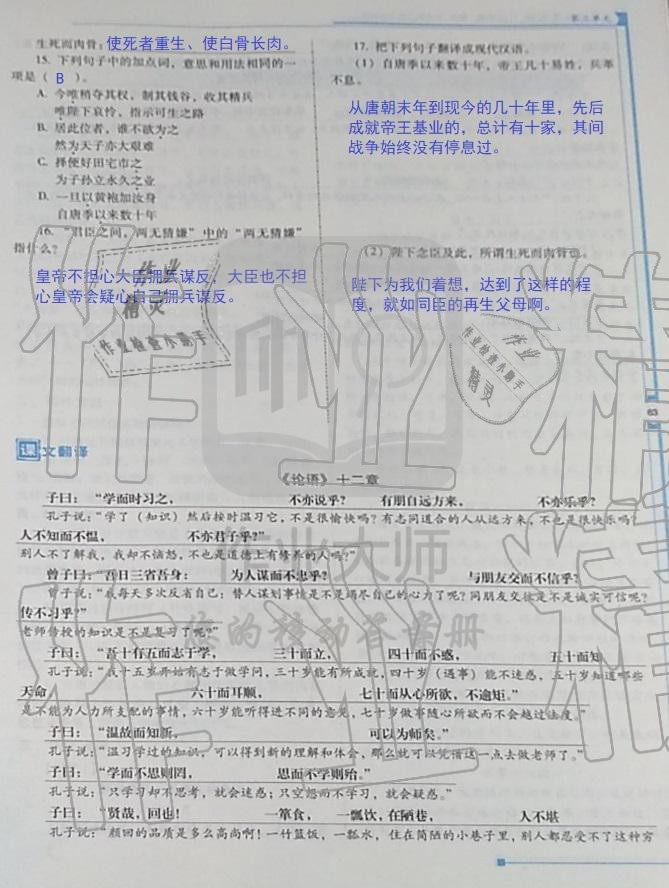 第三单元
生死而肉骨：使死者重生、使白骨长肉。
15. 下列句子中的加点词，意思和用法相同的一
项是（ B ）。
A. 今唯稍夺其权，制其钱谷，收其精兵
唯陛下哀怜，指示可生之路
B. 居此位者，谁不欲为之
然为天子亦大艰难
C. 择便好田宅市之
为子孙立永久之业
D. 一旦以黄袍加汝身
自唐季以来数十年
16. “君臣之间，两无猜嫌”中的“两无猜嫌”
指什么？
皇帝不担心大臣拥兵谋反，大臣也不担
心皇帝会疑心自己拥兵谋反。
17. 把下列句子翻译成现代汉语。
（1）自唐季以来数十年，帝王凡十易姓，兵革
不息。
从唐朝末年到现今的几十年里，先后
成就帝王基业的，总计有十家，其间
战争始终没有停息过。
（2）陛下念臣及此，所谓生死而肉骨也。
陛下为我们着想，达到了这样的程
度，就如同臣的再生父母啊。
63
课文翻译
《论语》十二章
子曰：“学而时习之，不亦说乎？有朋自远方来，不亦乐乎？
孔子说：“学了（知识）然后按时温习它，不是很愉快吗？有志同道合的人从远方来，不也是很快乐吗？
人不知而不愠，不亦君子乎？”
别人不了解我，我却不恼怒，不也是道德上有修养的人吗？”
曾子曰：“吾日三省吾身：为人谋而不忠乎？与朋友交而不信乎？
曾子说：“我每天多次反省自己：替人谋划事情是不是竭尽自己的心力了呢？同朋友交往是不是诚实可信呢？
传不习乎？”
老师传授的知识是不是复习了呢？”
子曰：“吾十有五而志于学，三十而立，四十而不惑，五十而知
孔子说：“我十五岁开始有志于做学问，三十岁能有所成就，四十岁（遇事）能不迷惑，五十岁知道哪些
天命，六十而耳顺，七十而从心所欲，不逾矩。”
是不能为人力所支配的事情，六十岁能听得进不同的意见，七十岁做事随心所欲而不会越过法度。”
子曰：“温故而知新，可以为师矣。”
孔子说：“温习学过的知识，可以得到新的理解和体会，那么就可以凭借这一点去做老师了。”
子曰：“学而不思则罔，思而不学则殆。”
孔子说：“只学习却不思考，就会迷惑；只空想而不学习，就会疑惑。”
子曰：“贤哉，回也！一箪食，一瓢饮，在陋巷，人不堪
孔子说：“颜回的品质是多么高尚啊！一竹篮饭，一瓢水，住在简陋的小巷子里，别人都忍受不了这种穷
作业大师
作业精灵
作业检查小助手
作业精灵
作业检查小助手